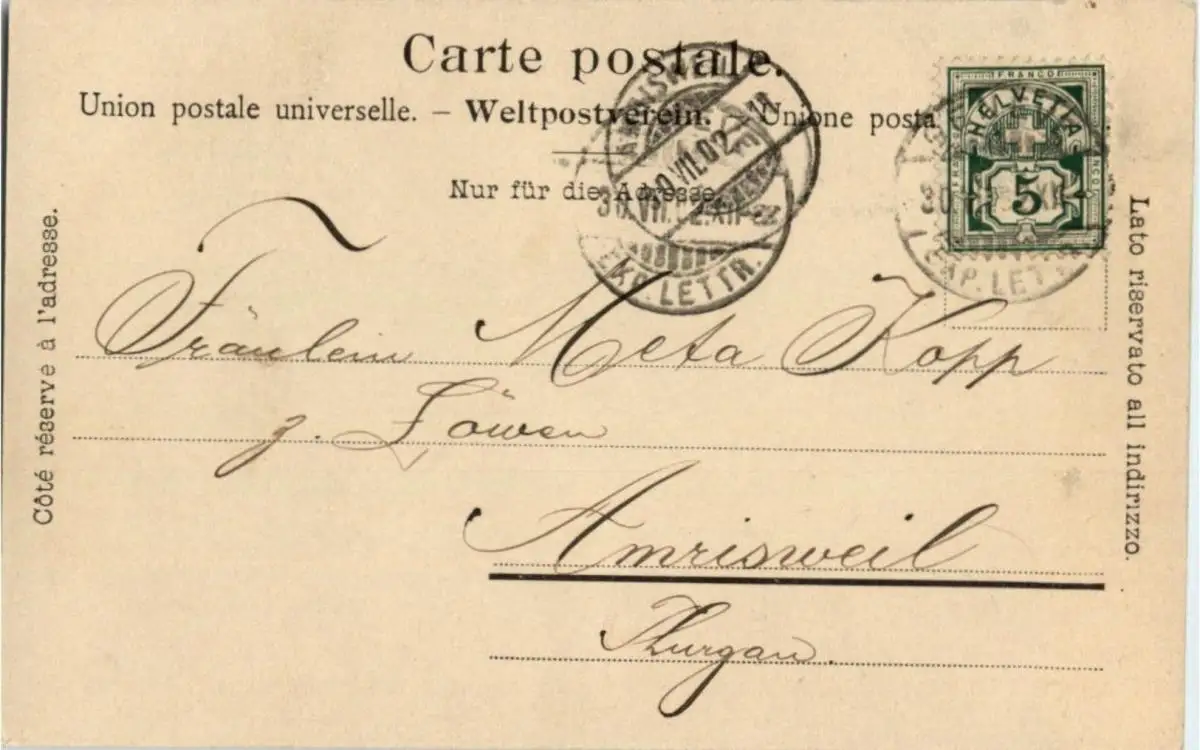 Carte postale.
Union postale universelle. – Weltpostverein. – Unione posta
Nur für die Adresse.
FRANCO
HELVETIA
5
AMRISWEIL
VII.02
30.VII.02.XII
EXP. LETTR.
30
EXP. LETTR.
Côté réservé à l'adresse.
Lato riservato all indirizzo.
Fräulein Meta Kopp
z. Löwen
Amrisweil
Thurgau.